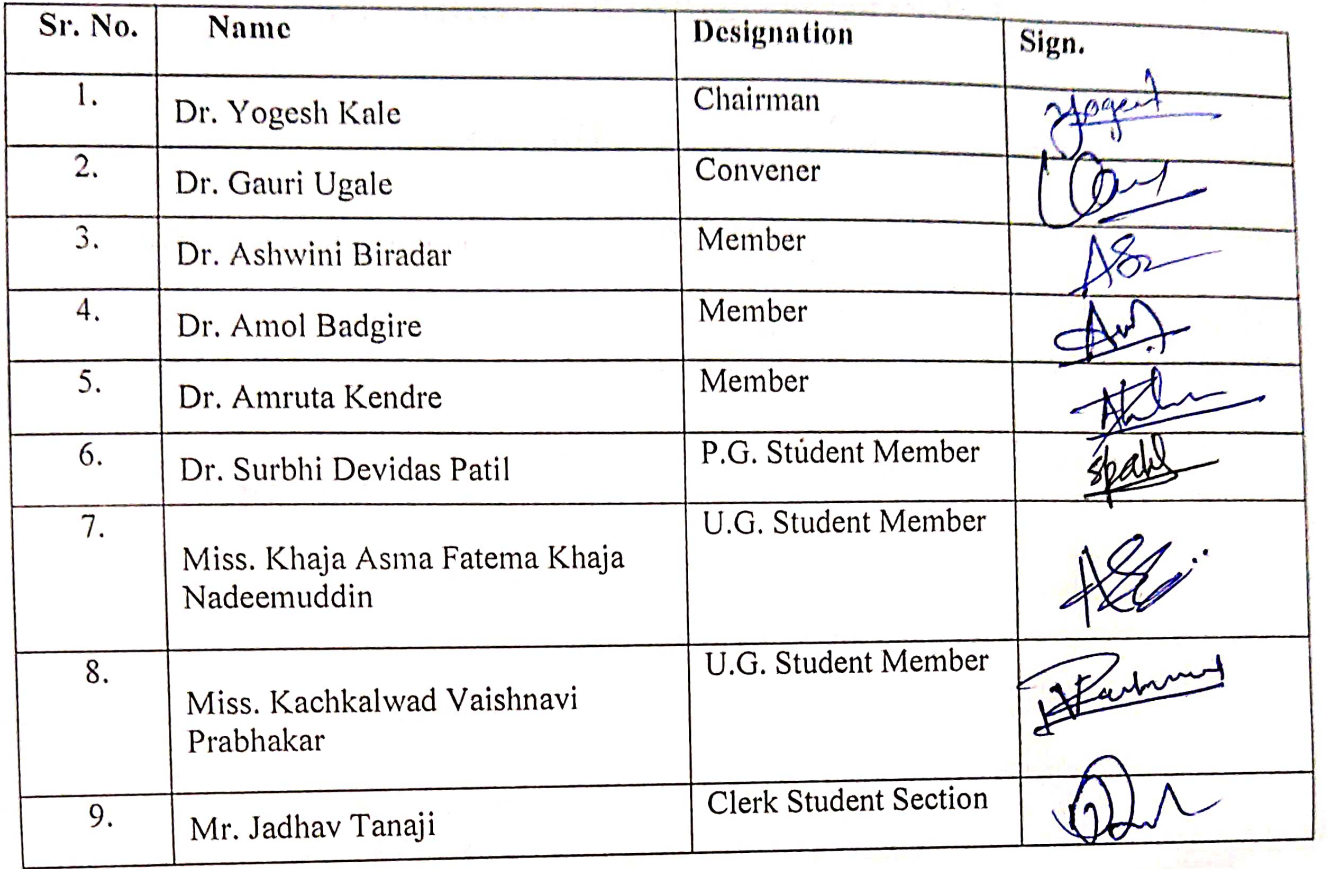 Sr. No. Name Designation Sign.
1. Dr. Yogesh Kale Chairman Yogesh
2. Dr. Gauri Ugale Convener
3. Dr. Ashwini Biradar Member
4. Dr. Amol Badgire Member
5. Dr. Amruta Kendre Member
6. Dr. Surbhi Devidas Patil P.G. Student Member
7. U.G. Student Member
Miss. Khaja Asma Fatema Khaja
Nadeemuddin
8. U.G. Student Member
Miss. Kachkalwad Vaishnavi
Prabhakar
9. Mr. Jadhav Tanaji Clerk Student Section